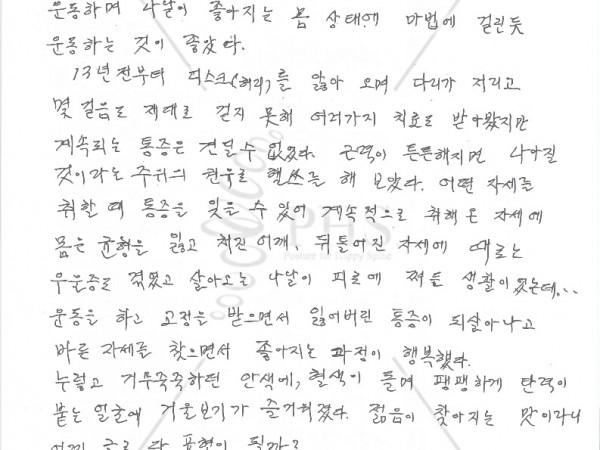 운동하며 나날이 좋아지는 몸 상태에 마법에 걸린듯
운동하는 것이 좋았다.
13년전부터 디스크(허리)를 앓아 오며 다리가 저리고
몇 걸음도 제대로 걷지 못해 여러가지 치료도 받아봤지만
계속되는 통증은 견딜수 없었다. 근력이 튼튼해지면 나아질
것이라는 주위의 권유로 헬쓰를 해 보았다. 어떤 자세를
취할 때 통증을 잊을 수 있어 계속적으로 취해 온 자세에
몸은 균형을 잃고 쳐진 어깨, 뒤틀어진 자세에 때로는
우울증도 겪었고 살아오는 나날이 피로에 쩌든 생활이었는데...
운동을 하고 교정을 받으면서 잃어버린 통증이 되살아나고
바른 자세를 찾으면서 좋아지는 과정이 행복했다.
누렇고 거무죽죽하던 안색에, 혈색이 돌며 팽팽하게 탄력이
붙는 얼굴에 거울보기가 즐거워졌다. 젊음이 찾아지는 맛이라니
글로 다 표현이 될까?
PHS
Posture for Happy Spine